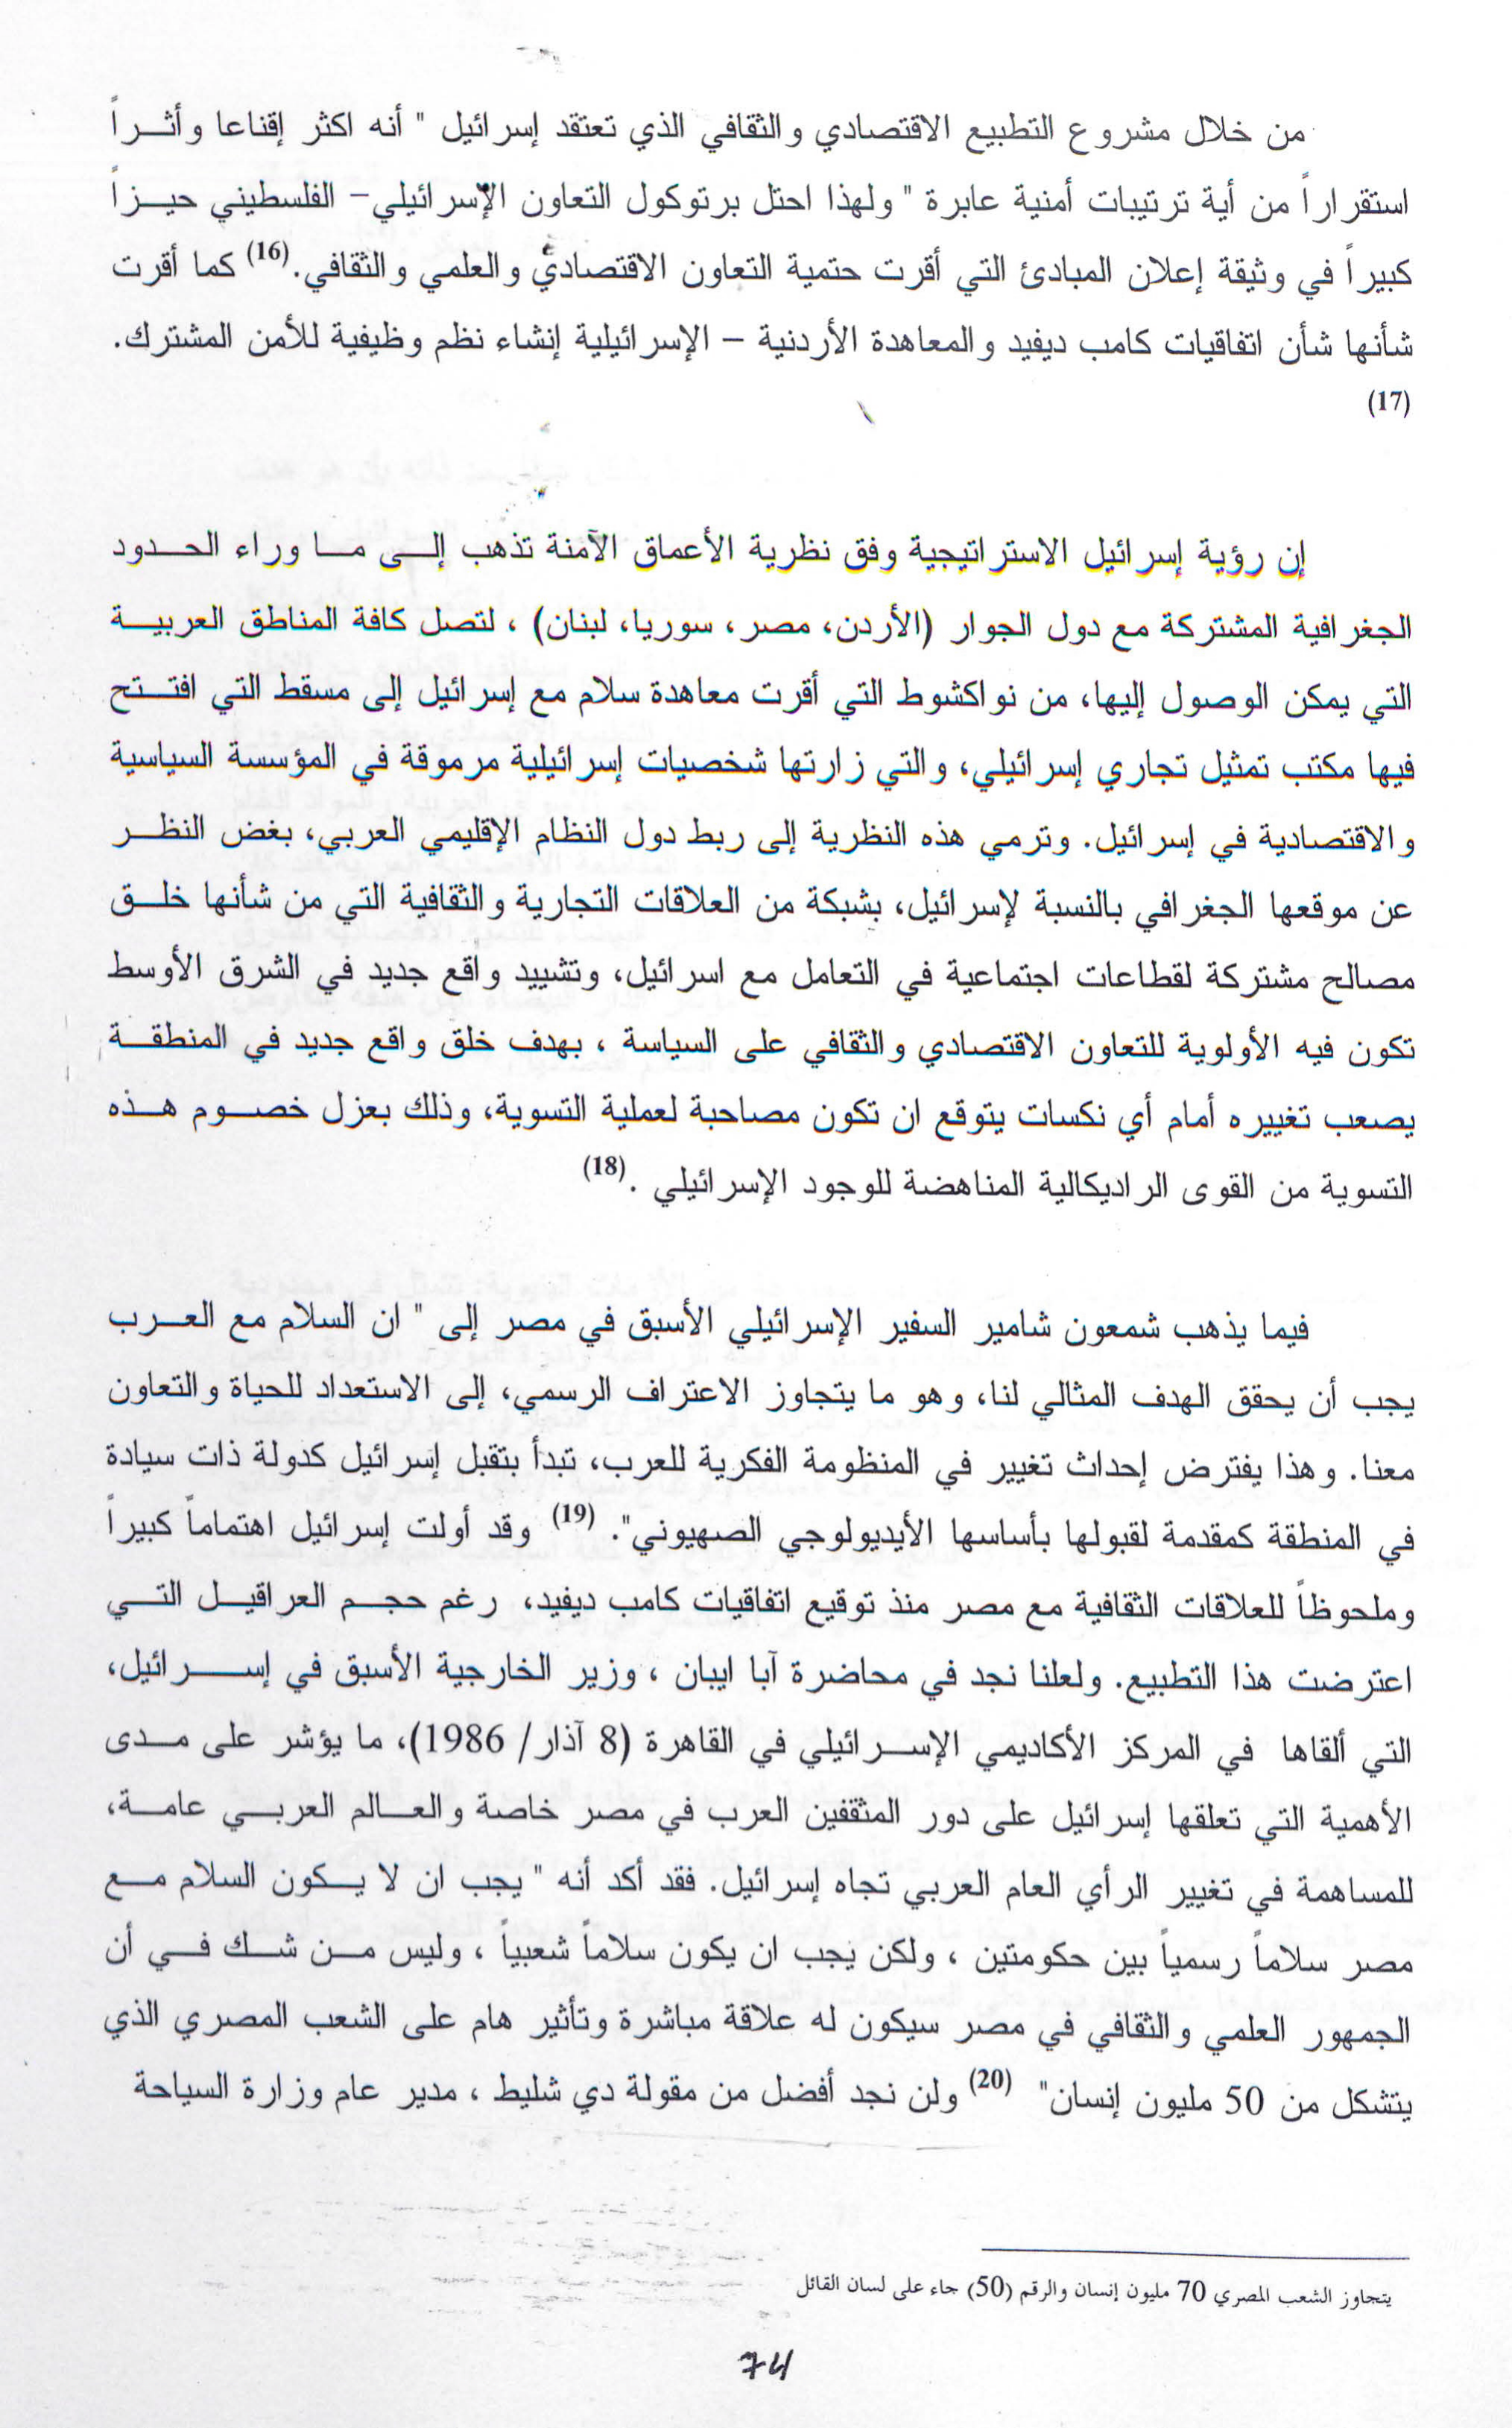 من خلال مشروع التطبيع الاقتصادي والثقافي الذي تعتقد إسرائيل " أنه اكثر إقناعا وأثراً
استقراراً من أية ترتيبات أمنية عابرة " ولهذا احتل برتوكول التعاون الإسرائيلي– الفلسطيني حيزاً
كبيراً في وثيقة إعلان المبادئ التي أقرت حتمية التعاون الاقتصادي والعلمي والثقافي.(16) كما أقرت
شأنها شأن اتفاقيات كامب ديفيد والمعاهدة الأردنية – الإسرائيلية إنشاء نظم وظيفية للأمن المشترك.
(17)
إن رؤية إسرائيل الاستراتيجية وفق نظرية الأعماق الآمنة تذهب إلى ما وراء الحدود
الجغرافية المشتركة مع دول الجوار (الأردن، مصر، سوريا، لبنان) ، لتصل كافة المناطق العربية
التي يمكن الوصول إليها، من نواكشوط التي أقرت معاهدة سلام مع إسرائيل إلى مسقط التي افتتح
فيها مكتب تمثيل تجاري إسرائيلي، والتي زارتها شخصيات إسرائيلية مرموقة في المؤسسة السياسية
والاقتصادية في إسرائيل. وترمي هذه النظرية إلى ربط دول النظام الإقليمي العربي، بغض النظر
عن موقعها الجغرافي بالنسبة لإسرائيل، بشبكة من العلاقات التجارية والثقافية التي من شأنها خلق
مصالح مشتركة لقطاعات اجتماعية في التعامل مع اسرائيل، وتشييد واقع جديد في الشرق الأوسط
تكون فيه الأولوية للتعاون الاقتصادي والثقافي على السياسة ، بهدف خلق واقع جديد في المنطقة
يصعب تغييره أمام أي نكسات يتوقع ان تكون مصاحبة لعملية التسوية، وذلك بعزل خصوم هذه
التسوية من القوى الراديكالية المناهضة للوجود الإسرائيلي .(18)
فيما يذهب شمعون شامير السفير الإسرائيلي الأسبق في مصر إلى " ان السلام مع العرب
يجب أن يحقق الهدف المثالي لنا، وهو ما يتجاوز الاعتراف الرسمي، إلى الاستعداد للحياة والتعاون
معنا. وهذا يفترض إحداث تغيير في المنظومة الفكرية للعرب، تبدأ بتقبل إسرائيل كدولة ذات سيادة
في المنطقة كمقدمة لقبولها بأساسها الأيديولوجي الصهيوني". (19) وقد أولت إسرائيل اهتماماً كبيراً
وملحوظاً للعلاقات الثقافية مع مصر منذ توقيع اتفاقيات كامب ديفيد، رغم حجم العراقيل التي
اعترضت هذا التطبيع. ولعلنا نجد في محاضرة آبا ايبان ، وزير الخارجية الأسبق في إسرائيل،
التي ألقاها في المركز الأكاديمي الإسرائيلي في القاهرة (8 آذار/ 1986)، ما يؤشر على مدى
الأهمية التي تعلقها إسرائيل على دور المثقفين العرب في مصر خاصة والعالم العربي عامة،
للمساهمة في تغيير الرأي العام العربي تجاه إسرائيل. فقد أكد أنه " يجب ان لا يكون السلام مع
مصر سلاماً رسمياً بين حكومتين ، ولكن يجب ان يكون سلاماً شعبياً ، وليس من شك في أن
الجمهور العلمي والثقافي في مصر سيكون له علاقة مباشرة وتأثير هام على الشعب المصري الذي
يتشكل من 50 مليون إنسان" (20) ولن نجد أفضل من مقولة دي شليط ، مدير عام وزارة السياحة
يتجاوز الشعب المصري 70 مليون إنسان والرقم (50) جاء على لسان القائل
74